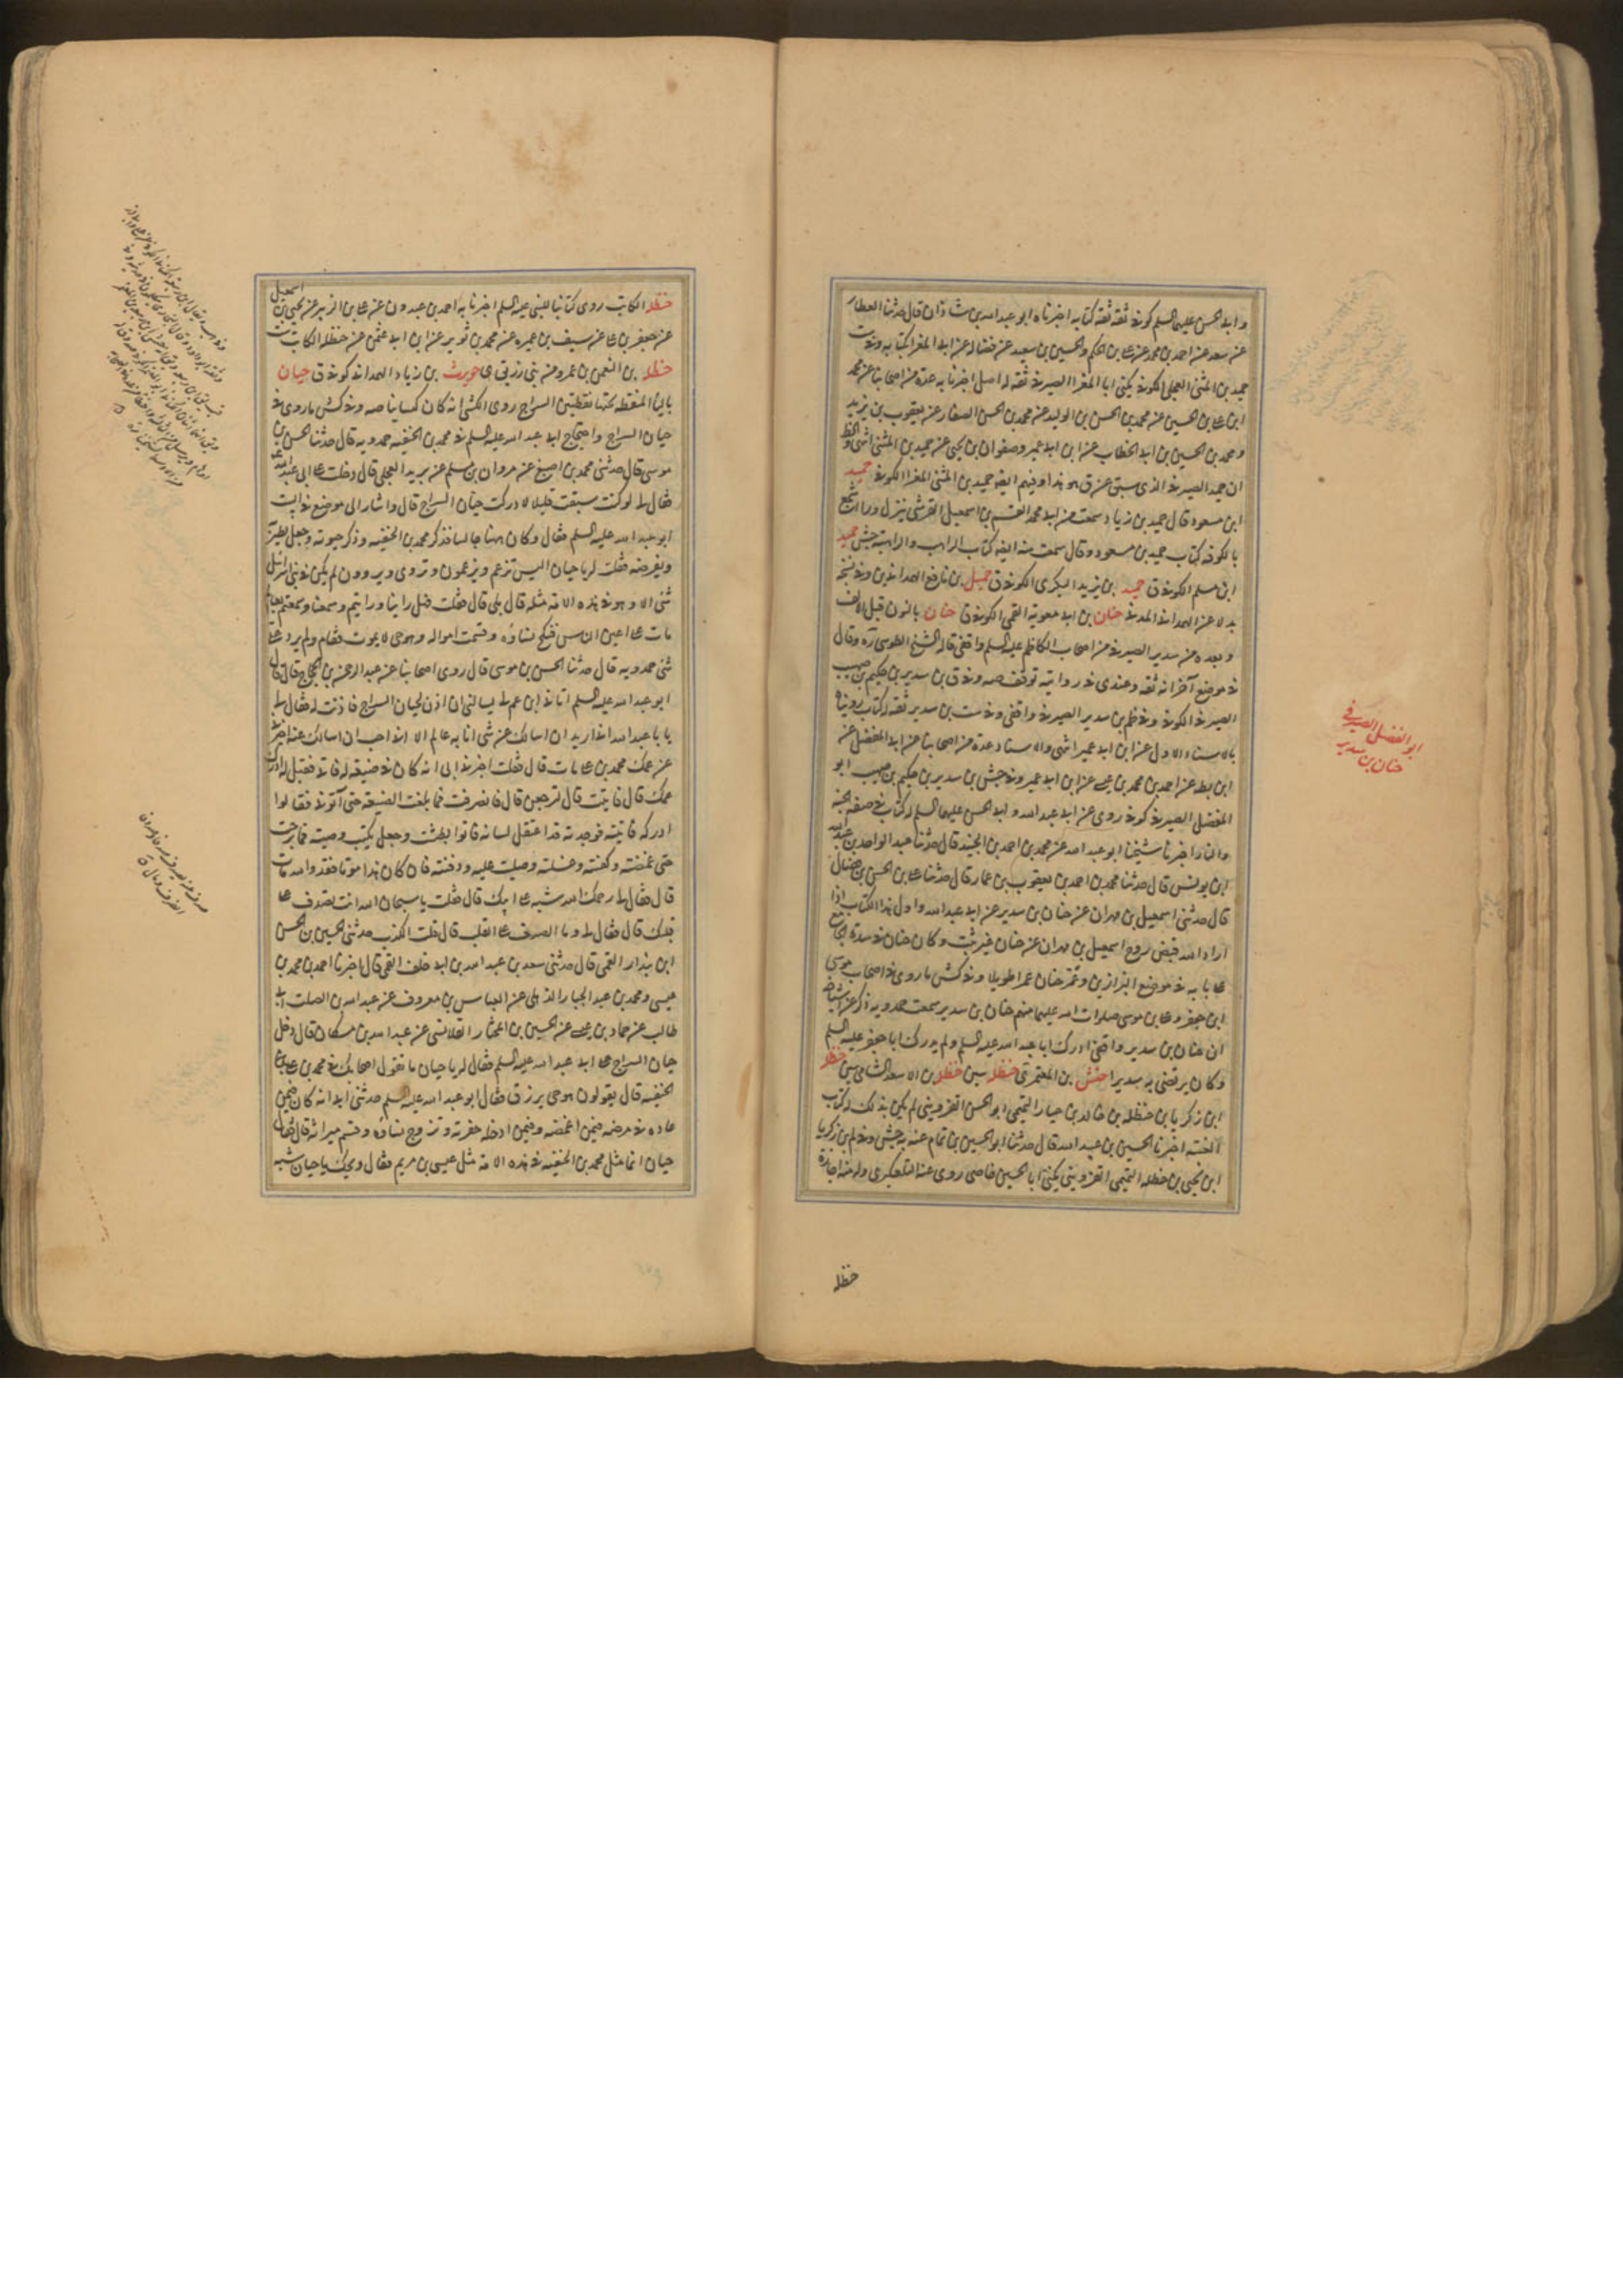 و ابی الحسن علیهما السلم کوفی ثقة ثقة کتابه اخبرناه ابو عبد الله بن شاذان قال حدثنا العطار
عن سعد عن احمد بن محمد عن علی بن الحکم والحسین بن سعید عن فضاله عن ابی المغرا بکتابه وفی ست
حمید بن المثنی العجلی الکوفی یکنی ابا المغرا الصیرفی ثقة له اصل اخبرنا به عدة من اصحابنا عن محمد
ابن علی بن الحسین عن محمد بن الحسن بن الولید عن محمد بن الحسن الصفار عن یعقوب بن یزید
و محمد بن الحسین بن ابی الخطاب عن ابن ابی عمیر وصفوان بن یحیی عن حمید بن المثنی انتهی
ان حمید الصیرفی الذی سبق عن ق هو هذا وفیهم ایضه حمید بن المثنی المغرا الکوفی حمید
ابن مسعود قال حمید بن زیاد سمعت من ابی محمد القسم بن اسمعیل القرشی ینزل وراء اشجع
بالکوفه کتاب حمید بن مسعود وقال سمعت منه ایضه کتاب الراهب والراهبة جش حمید
ابن مسلم الکوفی ق حمید بن یزید البکری الکوفی ق حمیل بن نافع الهمدانی وفی نسخه
بدلا عن الهمدانی المدنی حنان بن ابی معویة القمی الکوفی ق حنان بالنون قبل الالف
و بعده من سدیر الصیرفی من اصحاب الکاظم علیه السلم واقفی قاله الشیخ الطوسی ره وقال
فی موضع آخر انه ثقة وعندی فی روایته توقف صه وفی ق بن سدیر بن حکیم بن صهیب
الصیرفی الکوفی وفی ظم بن سدیر الصیرفی واقفی وفی ست بن سدیر ثقة له کتاب رویناه
بالاسناد الاول عن ابن ابی عمیر انتهی والاسناد عدة من اصحابنا عن ابی المفضل عن
ابن بطه عن احمد بن محمد بن عیسی عن ابن ابی عمیر وفی جش بن سدیر بن حکیم بن صهیب ابو
الفضل الصیرفی کوفی روی عن ابی عبد الله و ابی الحسن علیهما السلم له کتاب فی صفة الجنة
والنار اخبرنا شیخنا ابو عبد الله عن محمد بن احمد بن الجنید قال حدثنا عبد الواحد بن عبد الله
ابن یونس قال حدثنا محمد بن احمد بن یعقوب بن عمار قال حدثنا علی بن الحسن بن فضال
قال حدثنی اسمعیل بن مهران عن حنان بن سدیر عن ابی عبد الله واول هذا الکتاب اذا
اراد الله قبض روح اسمعیل بن مهران عن حنان غیر ثبت وکان حنان فی سدة الجامع
علی بابه فی موضع البزازین وعمّر حنان عمرا طویلا وفی کش ما روی فی اصحاب موسی
ابن جعفر وعلی بن موسی صلوات الله علیهما منهم حنان بن سدیر سمعت حمدویه ذکر عن اشیاخه
ان حنان بن سدیر واقفی ادرک ابا عبد الله علیه السلم ولم یدرک ابا جعفر علیه السلم
وکان یرتضی به سدیرا حنش بن المعتمر ی حنظله سین حنظله بن الاسعد الشامی سین حنظله
ابن زکریا بن حنظله بن خالد بن حیار التمیمی ابو الحسن القزوینی لم یکن بذلک له کتاب
الغیبة اخبرنا الحسین بن عبد الله قال حدثنا ابو الحسین بن تمام عنه به جش وفی لم بن زکریا
ابن یحیی بن حنظله التمیمی القزوینی یکنی ابا الحسین خاصی روی عنه التلعکبری وله منه اجازة
حنظله
ابو الفضل الصیرفی
حنان بن سدیر
حنظله الکاتب روی کتابا للنبی علیه السلم اخبرنا به احمد بن عبدون عن علی بن الزبیر عن یحیی بن اسمعیل
عن جعفر بن علی عن سیف بن عمیره عن محمد بن ثویر عن ابن ابی عثمن عن حنظله الکاتب ست
حنظله بن النعمن بن عمرو من بنی زریق ی حویرث بن زیاد الهمدانی کوفی ق حیان
بالیاء المنقطة تحتها نقطتین السراج روی الکشی انه کان کیسانیا صه وفی کش ما روی فی
حیان السراج واحتجاج ابی عبد الله علیه السلم فی محمد بن الحنفیه حمدویه قال حدثنا الحسن بن
موسی قال حدثنی محمد بن اصبغ عن مروان بن مسلم عن برید العجلی قال دخلت علی ابی عبد الله ع
فقال لی لو کنت سبقت قلیلا لادرکت حیان السراج قال واشار الی موضع فی البیت
ابو عبد الله علیه السلم فقال وکان ههنا جالسا فذکر محمد بن الحنفیه وذکر حیوته وجعل یطریه
ویقرضه فقلت له یا حیان الیس تزعم ویزعمون وتروی ویروون لم یکن فی بنی اسرائیل
شئ الا وهو فی هذه الامة مثله قال بلی قال فقلت فهل راینا ورایتم وسمعنا وسمعتم بعالم
مات علی اعین الناس فنکح نساؤه وقسمت امواله وهو حی لا یموت فقام ولم یرد علی
شئ حمدویه قال حدثنا الحسن بن موسی قال روی اصحابنا عن عبد الرحمن بن الحجاج قال قال
ابو عبد الله علیه السلم اتانی ابن عم لی یسالنی ان اذن لحیان السراج فاذنت له فقال لی
یا با عبد الله انی ارید ان اسالک عن شئ انا به عالم الا انی احب ان اسالک عنه اخبرنی
عن عمک محمد بن علی مات قال فقلت اخبرنی ابی انه کان فی ضیعة له فاتی فقیل له ادرک
عمک قال فاتیت قال لی ارجعن قال فانصرفت فما بلغت الضیعة حتی آتونی فقالوا
ادرکه فاتیته فوجدته قد اعتقل لسانه فاتوا بطشت وجعل یکتب وصیته فما برحت
حتی غمضته وکفنته وغسلته وصلیت علیه ودفنته فان کان هذا موتا فقد والله مات
قال فقال لی رحمک الله شبه علی ابیک قال فقلت یا سبحان الله انت تصدف علی
قلبک قال فقال لی وما الصدف علی القلب قال قلت الکذب حدثنی الحسین بن الحسن
ابن بندار القمی قال حدثنی سعد بن عبد الله بن ابی خلف القمی قال اخبرنا احمد بن محمد بن
عیسی و محمد بن عبد الجبار الذهلی عن العباس بن معروف عن عبد الله بن الصلت ابی
طالب عن حماد بن عیسی عن الحسین بن المختار القلانسی عن عبد الله بن مسکان قال دخل
حیان السراج علی ابی عبد الله علیه السلم فقال له یا حیان ما تقول اصحابک فی محمد بن علی بن
الحنفیه قال یقولون هو حی یرزق فقال ابو عبد الله علیه السلم حدثنی ابی انه کان فیمن
عاده فی مرضه فیمن اغمضه وفیمن ادخله حفرته وتزوج نساؤه وقسم میراثه قال فقال
حیان انما مثل محمد بن الحنفیه فی هذه الامة مثل عیسی بن مریم فقال ویحک یا حیان شبه